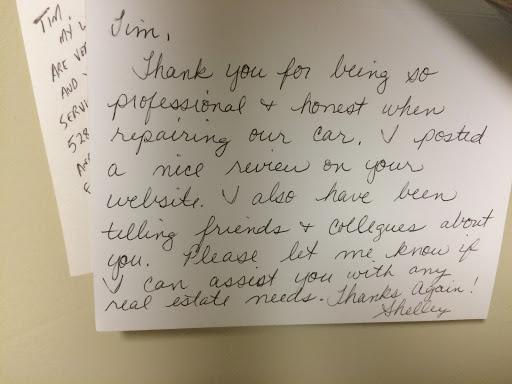 Tim,
Thank you for being so
professional & honest when
repairing our car. I posted
a nice review on your
website. I also have been
telling friends & collegues about
you. Please let me know if
I can assist you with any
real estate needs. Thanks Again!
Shelley
TIM,
MY
ARE VE
AND
SERVI
528